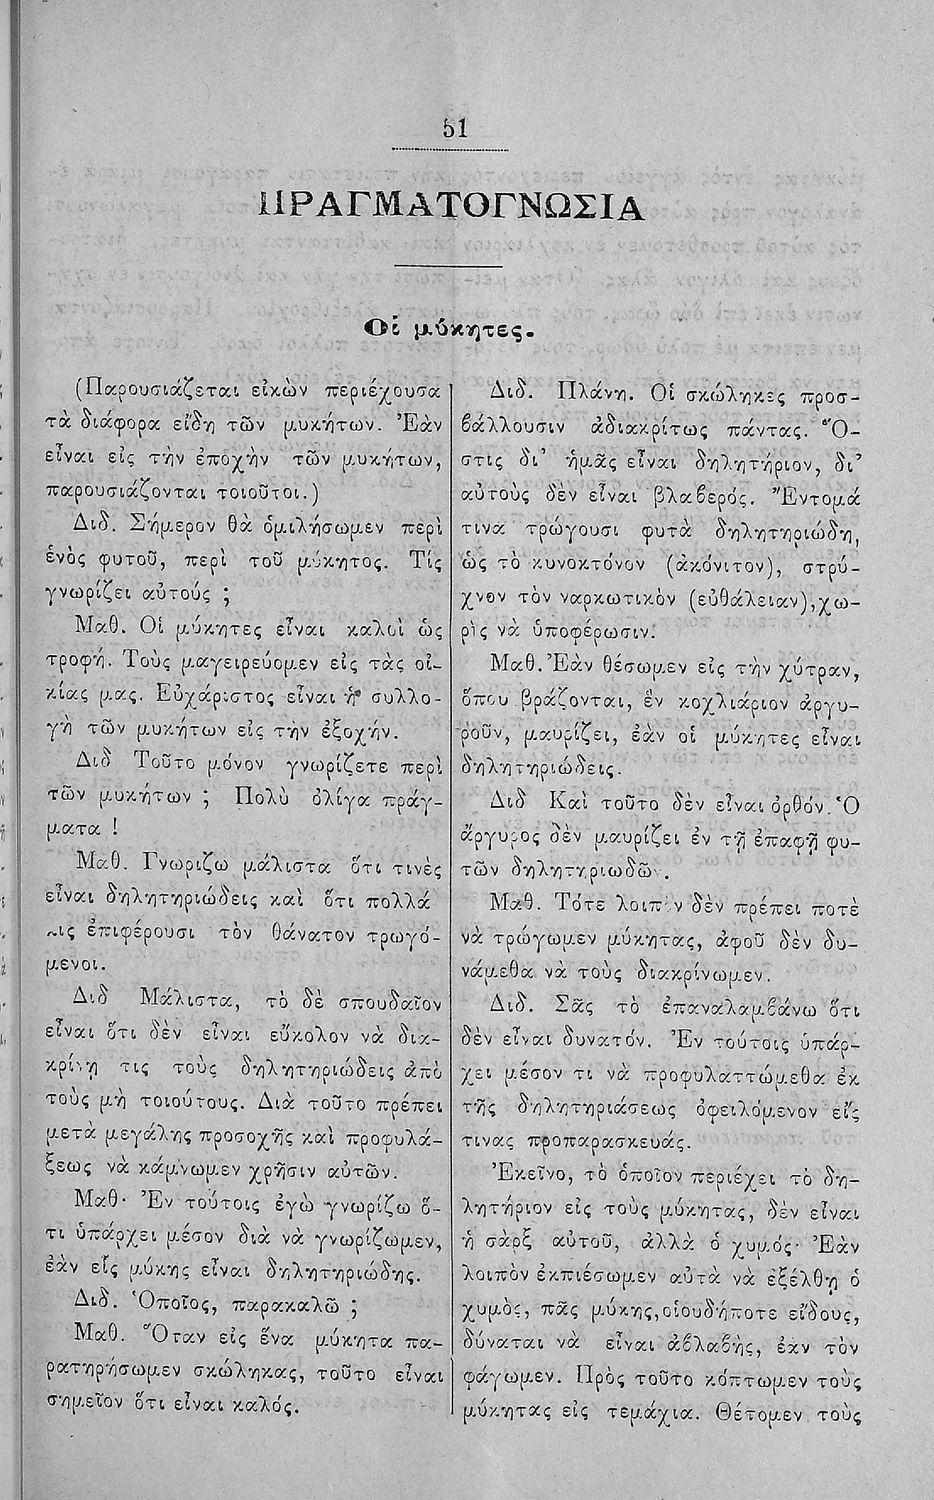 51
ΠΡΑΓΜΑΤΟΓΝΩΣΙΑ
Οἱ μύκητες.
(Παρουσιάζεται εἰκὼν περιέχουσα
τὰ διάφορα εἴδη τῶν μυκήτων. Ἐὰν
εἶναι εἰς τὴν ἐποχὴν τῶν μυκήτων,
παρουσιάζονται τοιοῦτοι.)
Διδ. Σήμερον θὰ ὁμιλήσωμεν περὶ
ἑνὸς φυτοῦ, περὶ τοῦ μύκητος. Τίς
γνωρίζει αὐτούς ;
Μαθ. Οἱ μύκητες εἶναι καλοὶ ὡς
τροφή. Τοὺς μαγειρεύομεν εἰς τὰς οἰ-
κίας μας. Εὐχάριστος εἶναι ἡ συλλο-
γὴ τῶν μυκήτων εἰς τὴν ἐξοχήν.
Διδ Τοῦτο μόνον γνωρίζετε περὶ
τῶν μυκήτων ; Πολὺ ὀλίγα πράγ-
ματα !
Μαθ. Γνωρίζω μάλιστα ὅτι τινὲς
εἶναι δηλητηριώδεις καὶ ὅτι πολλά
κις ἐπιφέρουσι τὸν θάνατον τρωγό-
μενοι.
Διδ Μάλιστα, τὸ δὲ σπουδαῖον
εἶναι ὅτι δὲν εἶναι εὔκολον νὰ δια-
κρίνῃ τις τοὺς δηλητηριώδεις ἀπὸ
τοὺς μὴ τοιούτους. Διὰ τοῦτο πρέπει
μετὰ μεγάλης προσοχῆς καὶ προφυλά-
ξεως νὰ κάμνωμεν χρῆσιν αὐτῶν.
Μαθ· Ἐν τούτοις ἐγὼ γνωρίζω ὅ-
τι ὑπάρχει μέσον διὰ νὰ γνωρίζωμεν,
ἐὰν εἷς μύκης εἶναι δηλητηριώδης.
Διδ. Ὁποῖος, παρακαλῶ ;
Μαθ. Ὅταν εἰς ἕνα μύκητα πα-
ρατηρήσωμεν σκώληκας, τοῦτο εἶναι
σημεῖον ὅτι εἶναι καλός.
Διδ. Πλάνη. Οἱ σκώληκες προσ-
βάλλουσιν ἀδιακρίτως πάντας. Ὅ-
στις δι' ἡμᾶς εἶναι δηλητήριον, δι'
αὐτοὺς δὲν εἶναι βλαβερός. Ἔντομά
τινα τρώγουσι φυτὰ δηλητηριώδη,
ὡς τὸ κυνοκτόνον (ἀκόνιτον), στρύ-
χνον τὸν ναρκωτικὸν (εὐθάλειαν),χω-
ρὶς νὰ ὑποφέρωσιν.
Μαθ. Ἐὰν θέσωμεν εἰς τὴν χύτραν,
ὅπου βράζονται, ἓν κοχλιάριον ἀργυ-
ροῦν, μαυρίζει, ἐὰν οἱ μύκητες εἶναι
δηλητηριώδεις.
Διδ Καὶ τοῦτο δὲν εἶναι ὀρθόν. Ὁ
ἄργυρος δὲν μαυρίζει ἐν τῇ ἐπαφῇ φυ-
τῶν δηλητηριωδῶν.
Μαθ. Τότε λοιπὸν δὲν πρέπει ποτὲ
νὰ τρώγωμεν μύκητας, ἀφοῦ δὲν δυ-
νάμεθα νὰ τοὺς διακρίνωμεν.
Διδ. Σᾶς τὸ ἐπαναλαμβάνω ὅτι
δὲν εἶναι δυνατόν. Ἐν τούτοις ὑπάρ-
χει μέσον τι νὰ προφυλαττώμεθα ἐκ
τῆς δηλητηριάσεως ὀφειλόμενον εἴς
τινας προπαρασκευάς.
Ἐκεῖνο, τὸ ὁποῖον περιέχει τὸ δη-
λητήριον εἰς τοὺς μύκητας, δὲν εἶναι
ἡ σὰρξ αὐτοῦ, ἀλλὰ ὁ χυμός· Ἐὰν
λοιπὸν ἐκπιέσωμεν αὐτὰ νὰ ἐξέλθῃ ὁ
χυμὸς, πᾶς μύκης,οἱουδήποτε εἴδους,
δύναται νὰ εἶναι ἀβλαβὴς, ἐὰν τὸν
φάγωμεν. Πρὸς τοῦτο κόπτωμεν τοὺς
μύκητας εἰς τεμάχια. Θέτομεν τοὺς